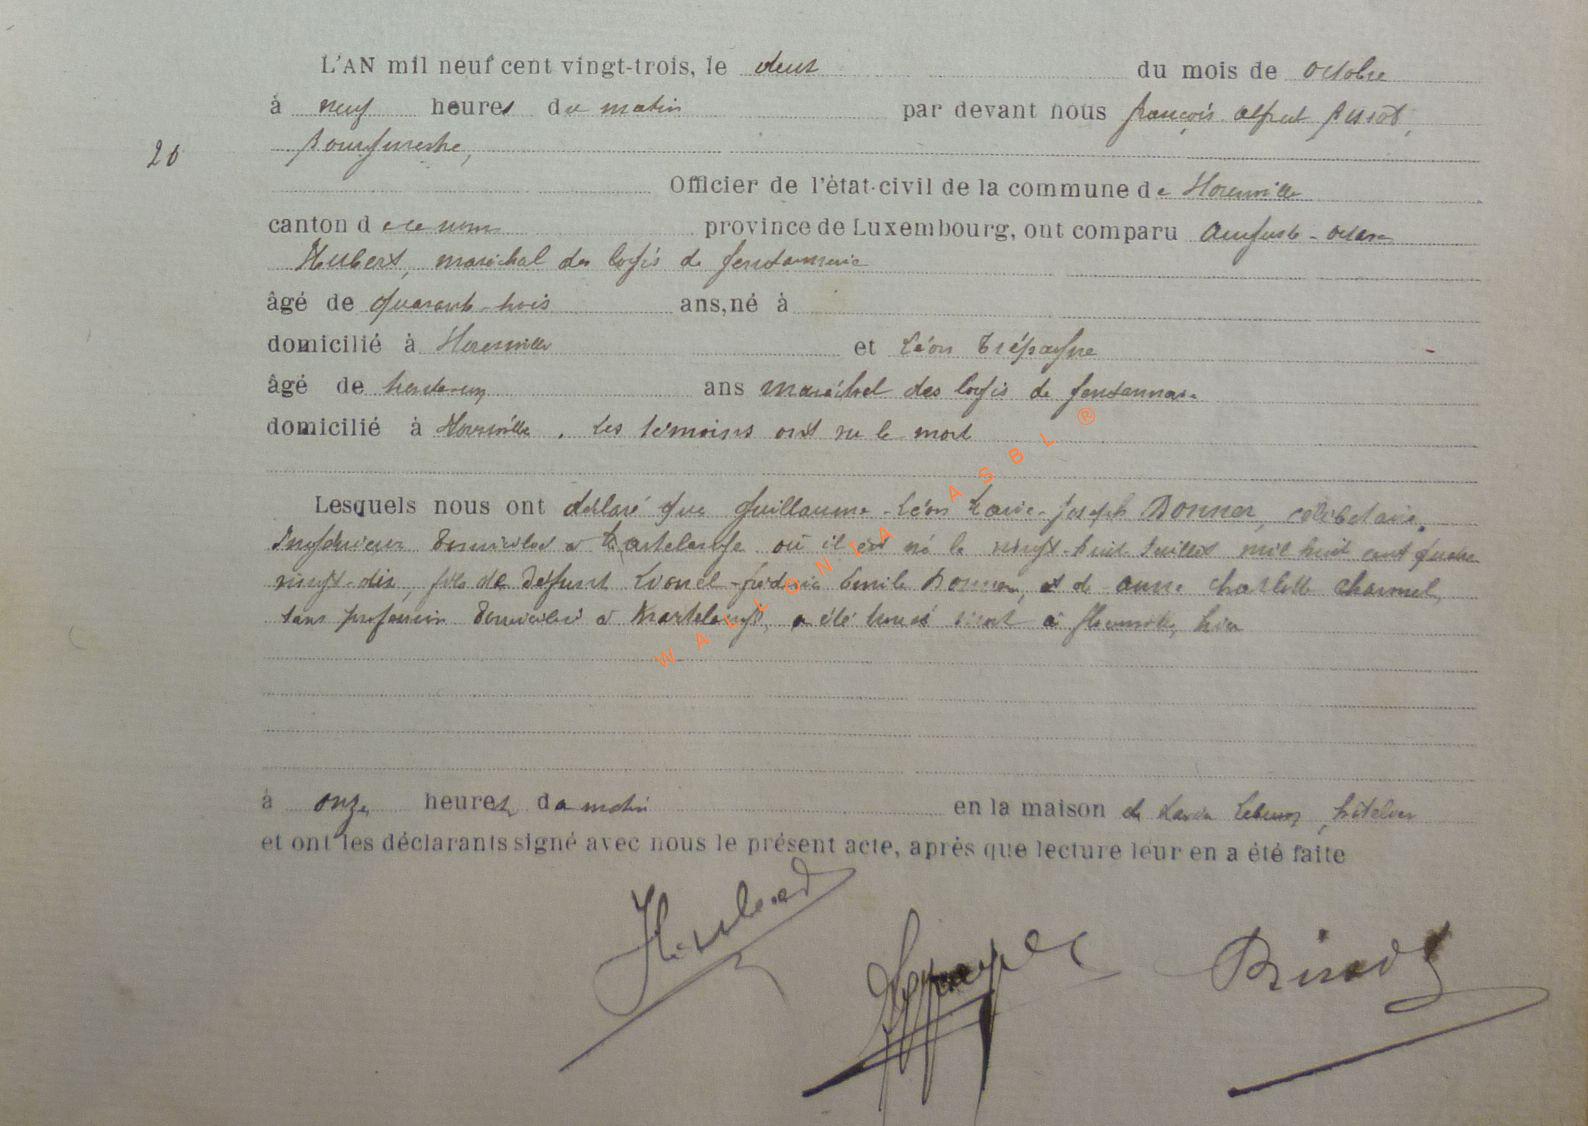 L'AN mil neuf cent vingt-trois, le deux du mois de octobre
à neuf heures du matin par devant nous françois alfred
20 Bourgmestre,
Officier de l'état-civil de la commune de
canton de ce nom province de Luxembourg, ont comparu Auguste - octave
Hubert, maréchal des logis de gendarmerie
âgé de quarante-trois ans, né à
domicilié à et Léon Trépagne
âgé de ans maréchal des logis de gendarmerie
domicilié à . Les témoins ont vu le mort
Lesquels nous ont déclaré que guillaume - Léon Joseph Bonner, célibataire,
Ingénieur domicilié à Martelange où il est né le vingt-huit Juillet mil huit cent quatre
vingt-dix, fils de défunt Lionel - frédéric Emile Bonner, et de anne charlotte charmel,
sans profession domiciliée à Martelange, a été trouvé mort à hier
à onze heures du matin en la maison de hôtelier
et ont les déclarants signé avec nous le présent acte, après que lecture leur en a été faite
WALLONIA ASBL ®